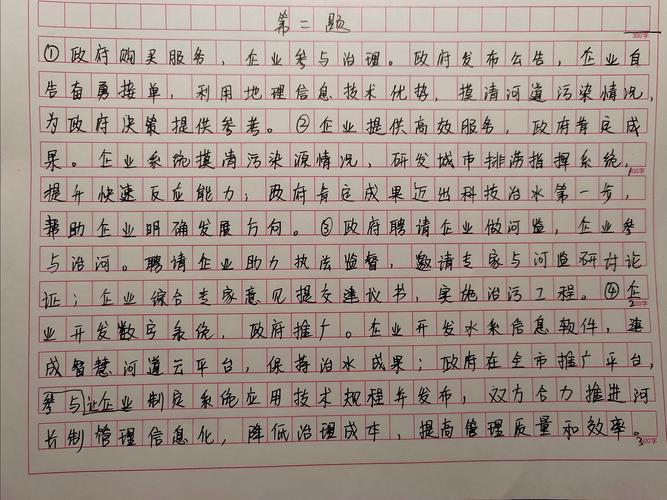 第二题
300字
①政府购买服务，企业参与治理。政府发布公告，企业自
告奋勇接单，利用地理信息技术优势，摸清河道污染情况，
为政府决策提供参考。②企业提供高效服务，政府肯定成
果。企业系统摸清污染源情况，研发城市排涝指挥系统，
100字
提升快速反应能力；政府肯定成果迈出科技治水第一步，
帮助企业明确发展方向。③政府聘请企业做河监，企业参
与治河。聘请企业助力执法监督，邀请专家与河监研讨论
证；企业综合专家意见提交建议书，实施治污工程。④企
200字
业开发数字系统，政府推广。企业开发水系信息软件，建
成智慧河道云平台，保持治水成果；政府在全市推广平台，
参与让企业制定系统应用技术规程并发布，双方合力推进河
长制管理信息化，降低治理成本，提高管理质量和效率。
300字